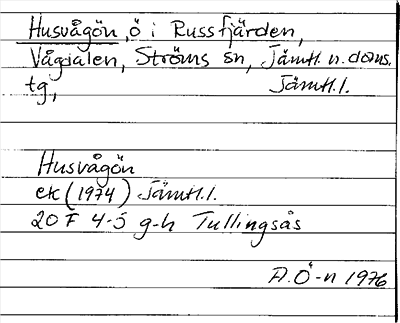 Husvågön, ö i Russfjärden,
Vågdalen, Ströms sn, Jämtl. n. doms.
tg, Jämtl.l.
Husvågön
ek (1974) Jämtl.l.
20 F 4-5 g-h Tullingsås
A.Ö-n 1976